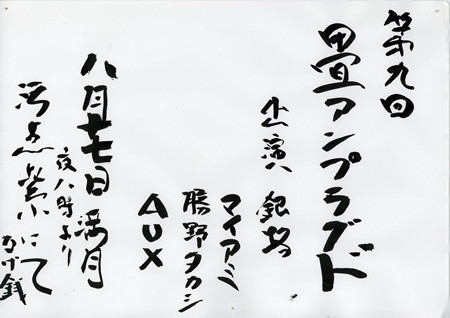 第九回
畳アンプラグド
出演 銀
マイアミ
勝野タカシ
AUX
八月十七日 満月
夜八時より
にて
なげ銭